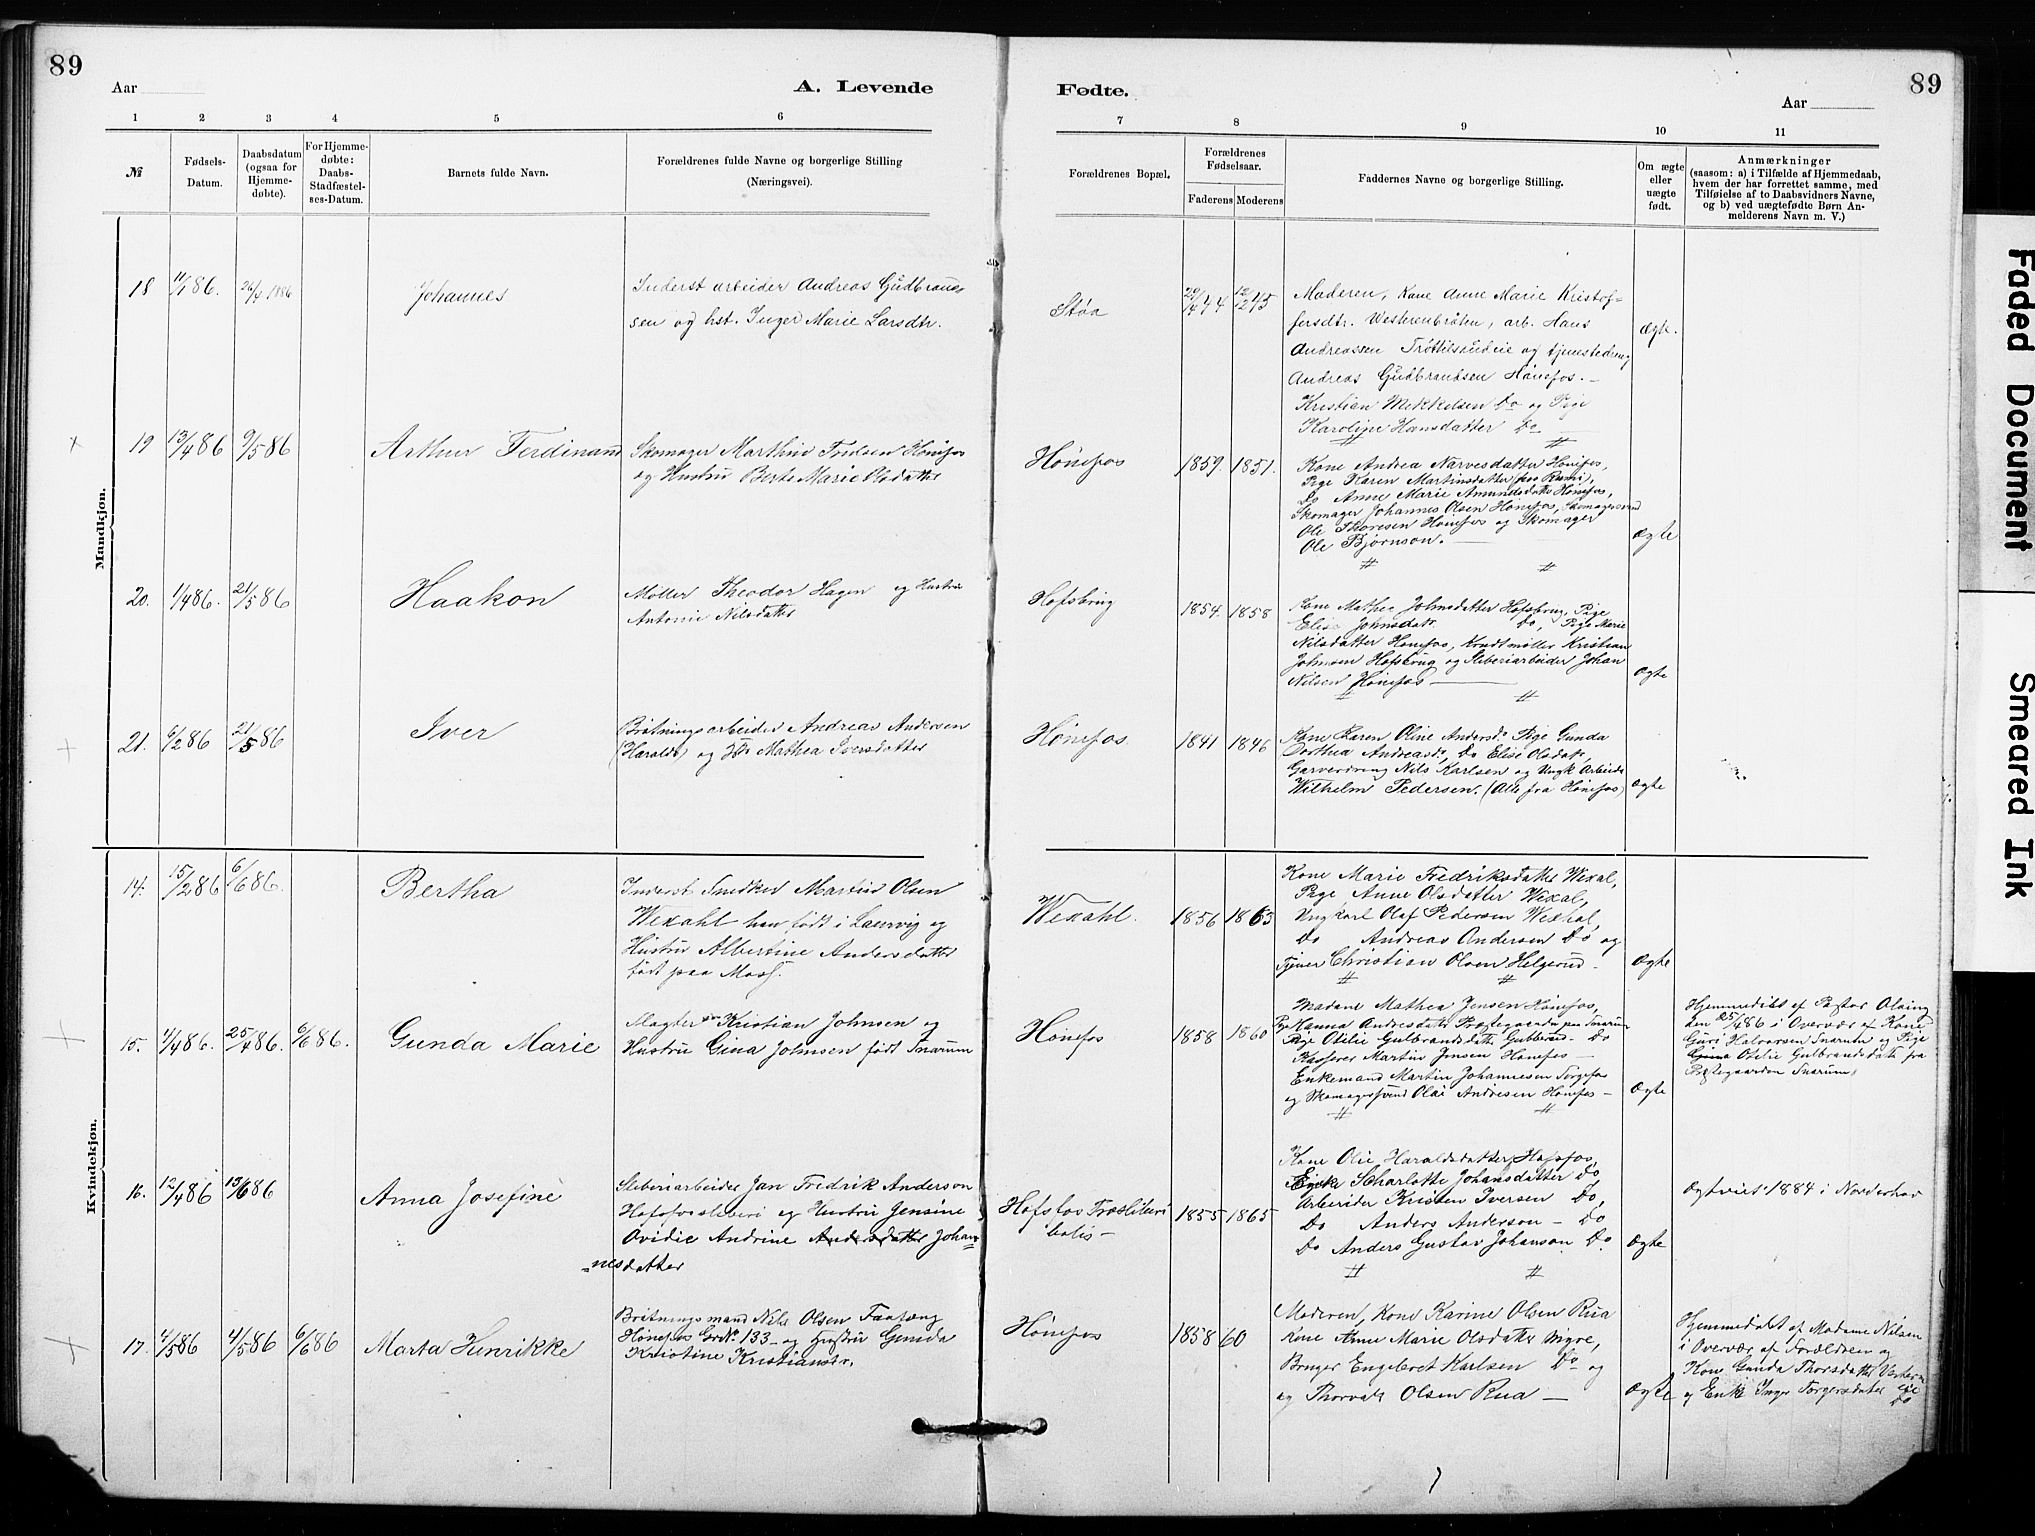 89
Aar
A. Levende
1 2 3 4 5 6
№
Fødsels-Datum.
Daabsdatum (ogsaa for Hjemmedøbte).
For Hjemmedøbte: Daabs-Stadfæstelses-Datum.
Barnets fulde Navn.
Forældrenes fulde Navne og borgerlige Stilling
(Næringsvei).
Mandkjøn.
18 11/1 86. 26/4 1886 Johannes
Inderst arbeider Andreas Gudbrand-
sen og hst. Inger Marie Larsdtr.
19 13/4 86 9/5 86 Arthur Ferdinand
Skomager Marthin Hønefos
og Hustru Berte Marie Olsdatter
20. 1/4 86. 21/5 86 Haakon
Møller Theodor Hagen og Hustru
Antonie Nilsdatter
21. 6/2 86 21/5 86 Iver
Brøtningsarbeider Andreas Andersen
(Haralds) og Mathea Iversdatter
Kvindekjøn.
14. 15/2 86 6/6 86. Bertha
Inderst Snedker Martius Olsen
Wexahl han født i Laurvig og
Hustru Albertine Andersdatter
født paa Moss.
15. 4/4 86. 25/4 86. 6/6 86. Gunda Marie
Slagter Kristian Johnsen og
Hustru Gina Johnsen født Snarum
16. 12/4 86 13/6 86 Anna Josefine
Sliberiarbeider Jan Fredrik Anderson
Hofsfossliberi og Hustru Jensine
Ovidie Andrine Andersdatter Johan-
nesdatter
17. 4/5 86 4/5 86 6/6 86 Marta Henrikke
Brøtningsmand Nils Olsen Faafæng
Hønefos Grd№ 133 og Hustru Gunda
Kristine Kristiansdtr.
Fødte.
Aar
89
7 8 9 10 11
Forældrenes Bopæl.
Forældrenes Fødselsaar.
Faderens Moderens
Faddernes Navne og borgerlige Stilling.
Om ægte eller uægte født.
Anmærkninger
(saasom: a) i Tilfælde af Hjemmedaab,
hvem der har forrettet samme, med
Tilføielse af to Daabsvidners Navne,
og b) ved uægtefødte Børn An-
melderens Navn m. V.)
Støa 29/4 44 12/12 45
Moderen, Kone Anne Marie Kristof-
fersdtr. Westerenbråten, arb. Hans
Andreassen og tjenestedreng
Andreas Gudbrandsen Hønefos.
ægte.
Kristian Mekkelsen Do og Pige
Karoline Hansdatter Do
Hønefos 1859. 1851.
Kone Andrea Narvesdatter Hønefos,
Pige Karen Martinsdatter
Do Anne Marie Amundsdatter Hønefos,
Skomager Johannes Olsen Hønefos, Skomagersvend
Ole Thoresen Hønefos og Skomager
Ole Bjørnson.
Ægte
Hofsbrug 1854. 1858
Kone Mathea Johnsdatter Hofsbrug, Pige
Elise Johnsdatr. Do, Pige Marie
Nilsdatter Hønefos, Krudtmøller Kristian
Johnsen Hofsbrug og Sliberiarbeider Johan
Nilsen Hønefos
Ægte
Hønefos. 1841 1846
Kone Karen Oline Andersd. Pige Gunda
Dorthea Andreasd. Do Elise Olsdat.
Garverdreng Nils Karlsen og Ungk Arbeide
Wilhelm Pedersen. (Alle fra Hønefos)
Ægte
Wexahl. 1856 1863
Kone Marie Fredriksdatter Wexal,
Pige Anne Olsdatter Wexal,
Ungkarl Olaf Pedersen Wexhal,
Do Andreas Andersen Do og
Tjener Christian Olsen Helgerud.
Ægte
Hønefos 1858 1860
Madame Mathea Jensen Hønefos,
Pige Hanna Andresdatr Præstegaarden paa Snarum
Pige Otilie Gulbrandsdatter Do
Kasserer Martin Jensen Hønefos
Enkemand Martin Johannesen
og Skomagersvend Olai Andresen Hønefos
Ægte
Hjemmedøbt af Pastor
den 25/4 86 i Overvær af Kone
Guri Halvorsen Snarum og Pige
Gina Otilie Gulbrandsdatr fra
Præstegaarden Snarum.
Hofsfos Træsliberi
bolig 1855 1865
Kone Olie Haraldsdatter Hofsfos,
Charlotte Johansdatter Do,
Arbeider Kristen Iversen Do,
Do Anders Anderson Do,
Do Anders Gustav Johanson Do
Ægte
Ægteviet 1884 i Norderhov
Hønefos 1858 60
Moderen, Kone Karine Olsen Rua
Kone Anne Marie Olsdatter Myre,
Bruger Engebret Karlsen Do og
og Thorvald Olsen Rua
Ægte
Hjemmedøbt af Madame Nilsen
i Overvær af Forældren og
Kone Gunda Thorsdatter
og Enke Inger Torgersdatter
Do
Faded Document
Smeared Ink